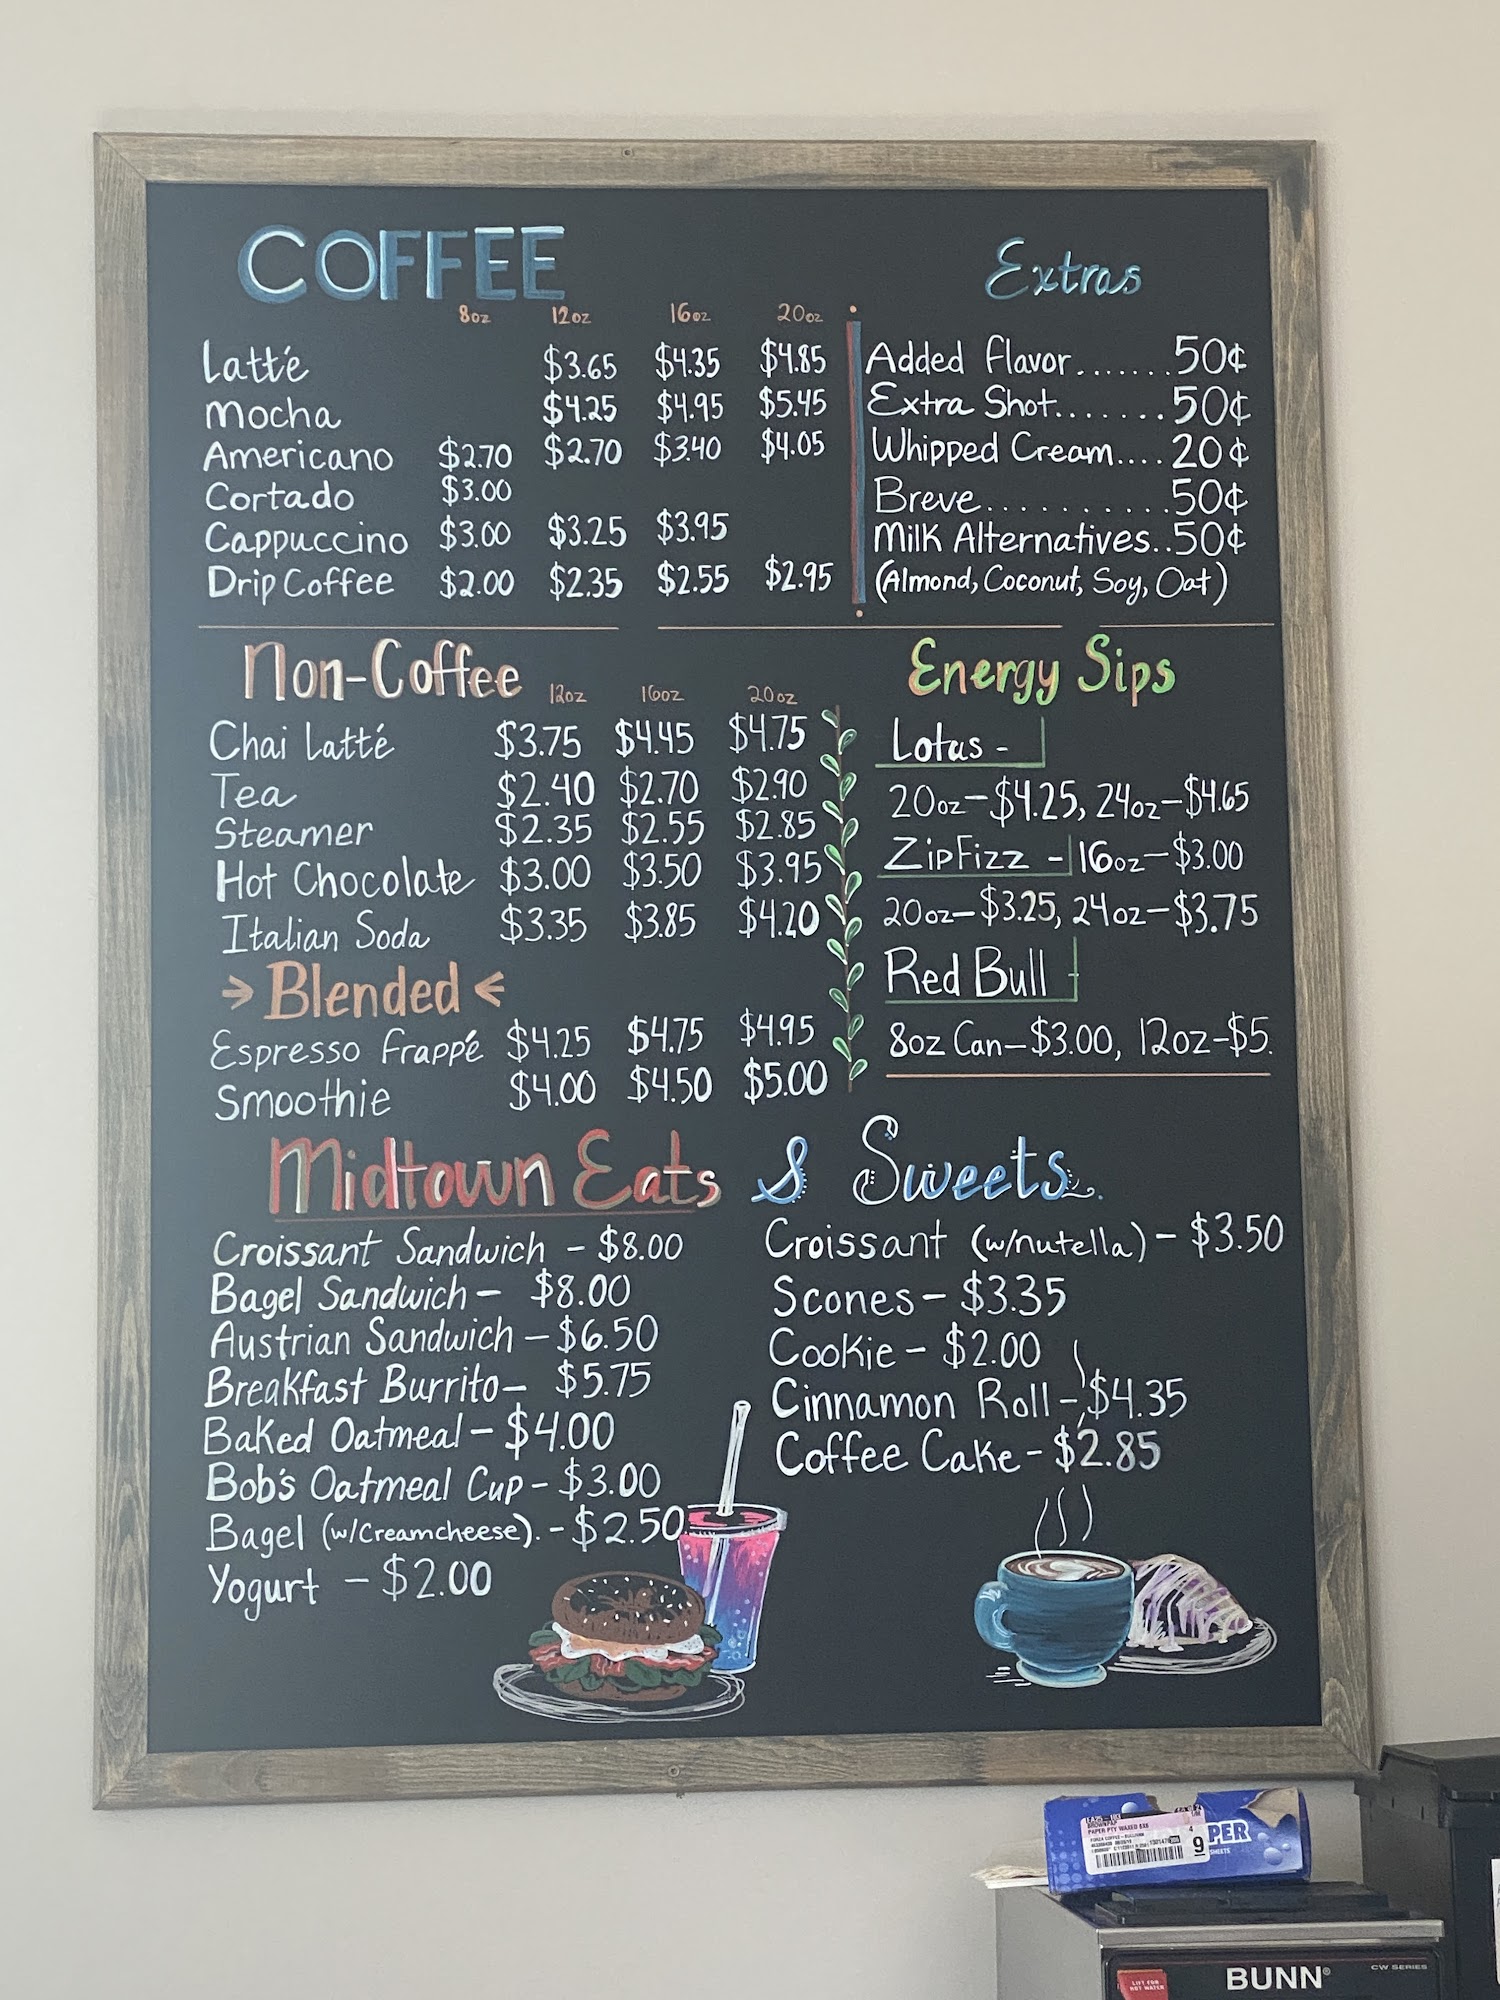 COFFEE
8oz 12oz 16oz 20oz
Latté $3.65 $4.35 $4.85
Mocha $4.25 $4.95 $5.45
Americano $2.70 $2.70 $3.40 $4.05
Cortado $3.00
Cappuccino $3.00 $3.25 $3.95
Drip Coffee $2.00 $2.35 $2.55 $2.95
Extras
Added Flavor.......50¢
Extra Shot.......50¢
Whipped Cream....20¢
Breve..........50¢
Milk Alternatives..50¢
(Almond, Coconut, Soy, Oat)
Non-Coffee
12oz 16oz 20oz
Chai Latté $3.75 $4.45 $4.75
Tea $2.40 $2.70 $2.90
Steamer $2.35 $2.55 $2.85
Hot Chocolate $3.00 $3.50 $3.95
Italian Soda $3.35 $3.85 $4.20
Blended
Espresso Frappé $4.25 $4.75 $4.95
Smoothie $4.00 $4.50 $5.00
Energy Sips
Lotus -
20oz-$4.25, 24oz-$4.65
ZipFizz - 16oz-$3.00
20oz-$3.25, 24oz-$3.75
Red Bull -
8oz Can-$3.00, 12oz-$5.
Midtown Eats & Sweets
Croissant Sandwich - $8.00
Bagel Sandwich - $8.00
Austrian Sandwich - $6.50
Breakfast Burrito - $5.75
Baked Oatmeal - $4.00
Bob's Oatmeal Cup - $3.00
Bagel (w/Creamcheese). - $2.50
Yogurt - $2.00
Croissant (w/nutella) - $3.50
Scones - $3.35
Cookie - $2.00
Cinnamon Roll - $4.35
Coffee Cake - $2.85
PER
SHEETS
9
LIFT FOR
HOT WATER
BUNN®
CW SERIES